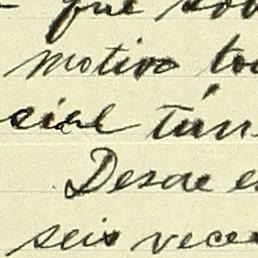 que sob
motivo to
cial tún
Desde e
seis vece